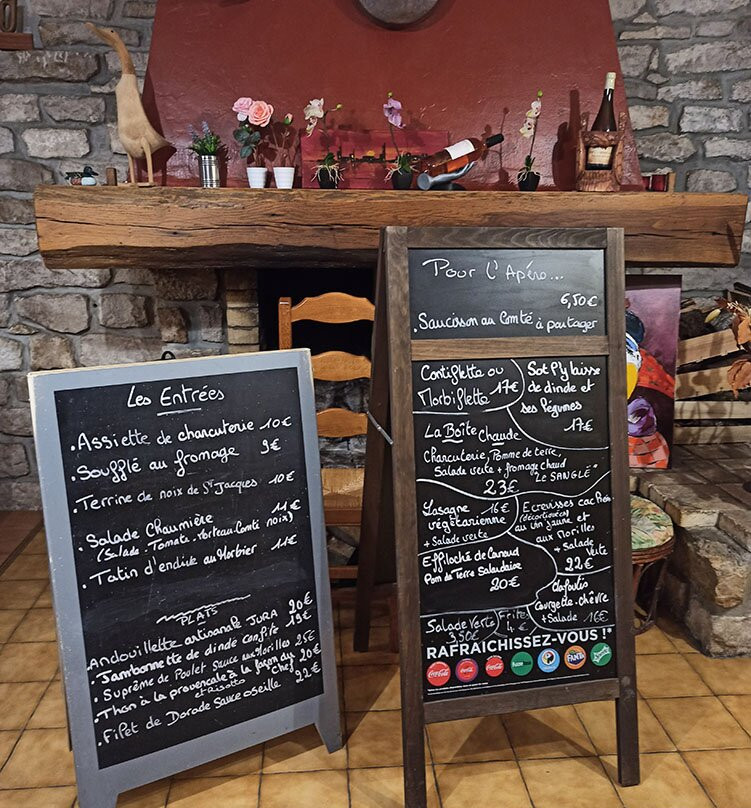 Les Entrées
. Assiette de charcuterie 10€
. Soufflé au fromage 9€
. Terrine de noix de St Jacques 10€
. Salade Chaumière 11€
(Salade. Tomate. Morteau. Comté noix)
. Tatin d'endive au Morbier 11€
PLATS
. Andouillette artisanale JURA 20€
. Jambonnette de dinde confite 19€
. Suprême de Poulet Sauce aux Morilles 25€
. Thon à la provençale à la façon du Chef 20€
et Risotto
. Filet de Dorade Sauce oseille 22€
Pour L'Apéro...
6,50€
. Saucisson au Comté à partager
Contiflette ou
Morbiflette 17€
Sot l'y laisse
de dinde et
ses légumes
17€
La Boîte Chaude
Charcuterie, Pomme de terre,
Salade verte + fromage chaud
"LE SANGLÉ"
23€
Lasagne 16€
végétarienne
+ Salade verte
Ecrevisses
(décortiquées)
au Vin jaune et
aux Morilles
+ Salade
Verte
22€
Effiloché de Canard
Pom de Terre Saladaise
20€
Clafoutis
Courgette. chèvre
+ Salade 16€
Salade Verte
3,50€
Frites
4€
RAFRAICHISSEZ-VOUS !*
Coca-Cola
Coca-Cola
Coca-Cola
FANTA